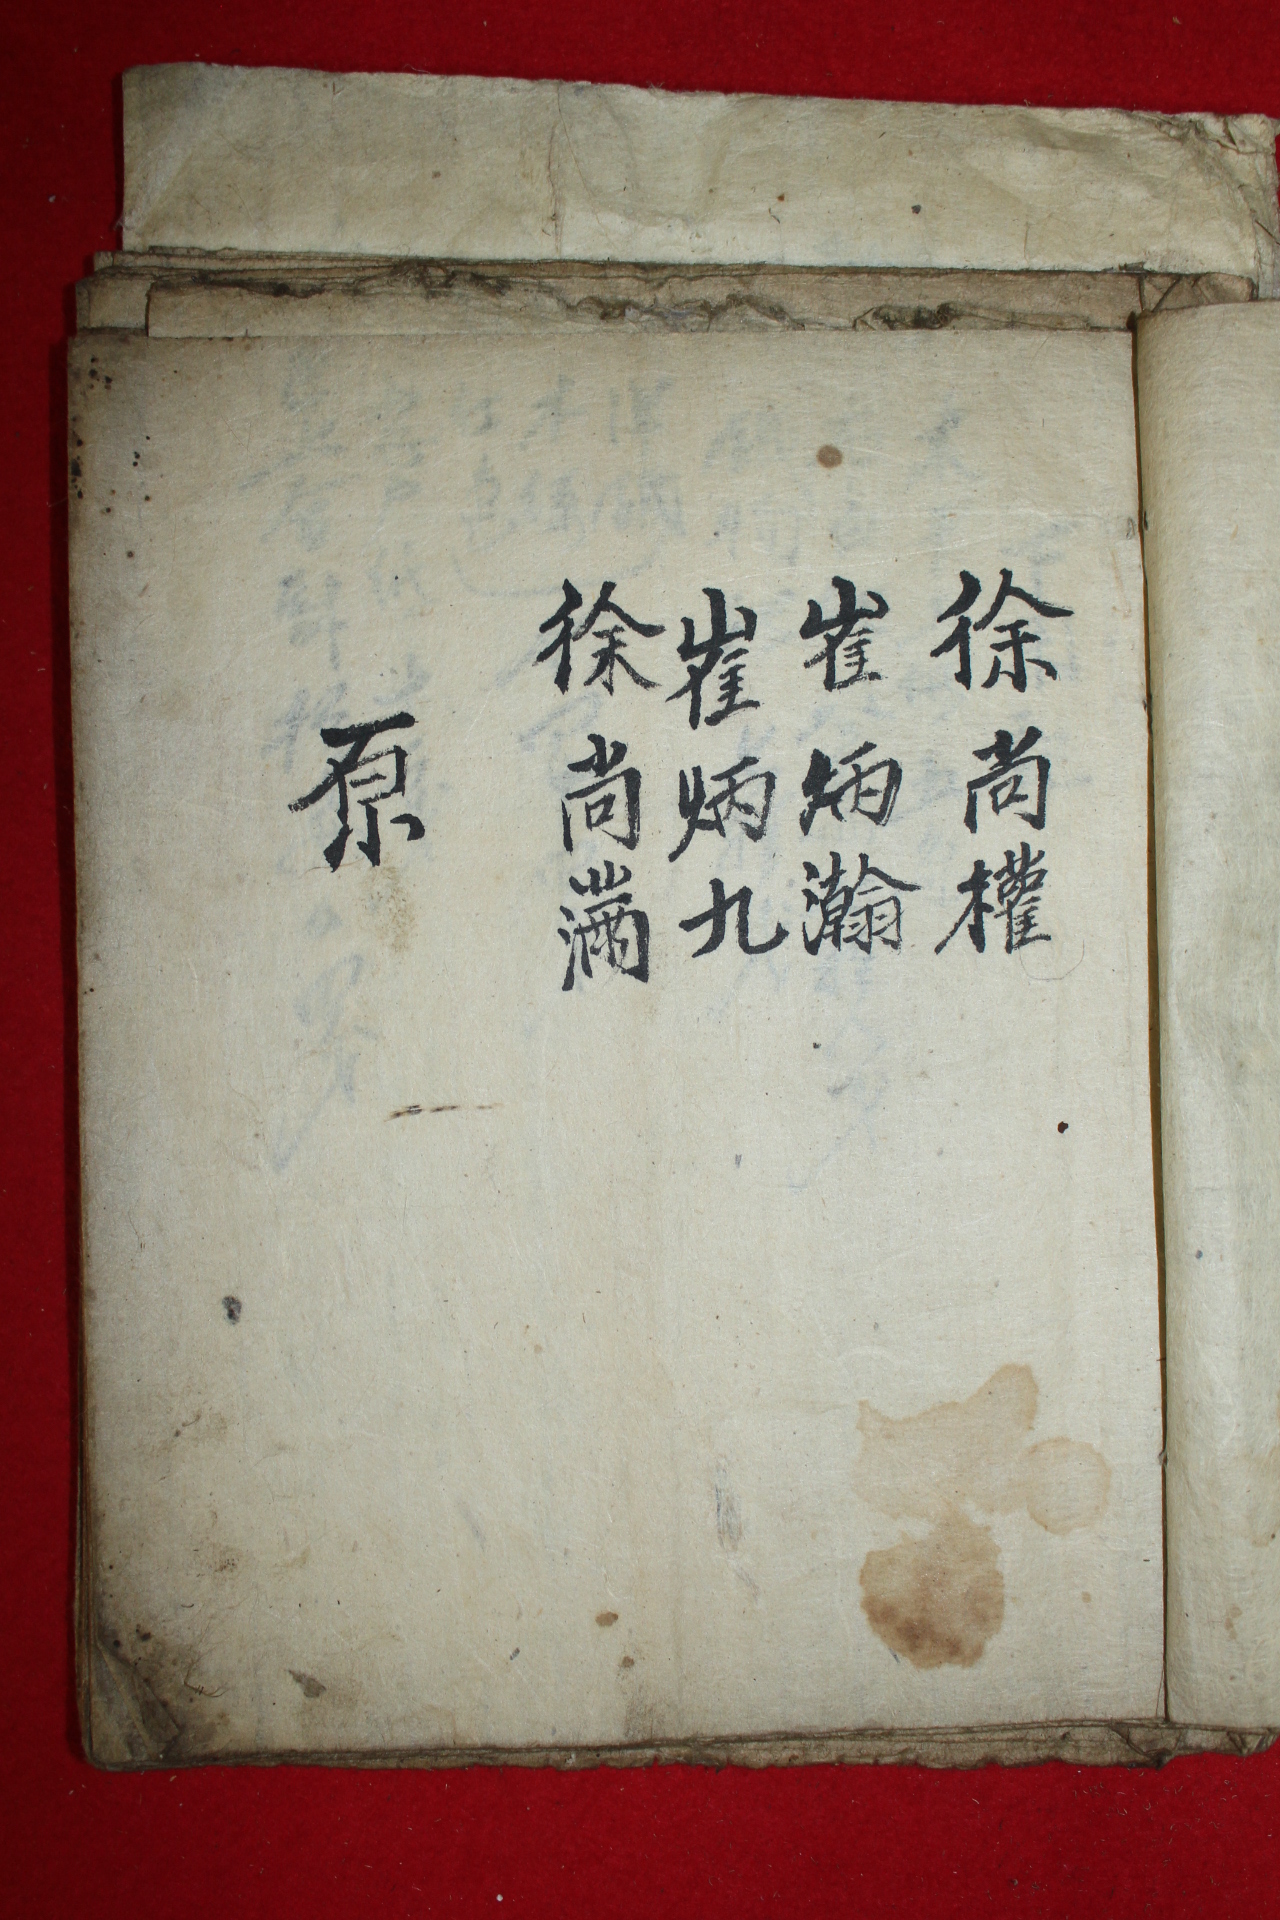 徐尚權
崔炳瀚
崔炳九
徐尚滿
原